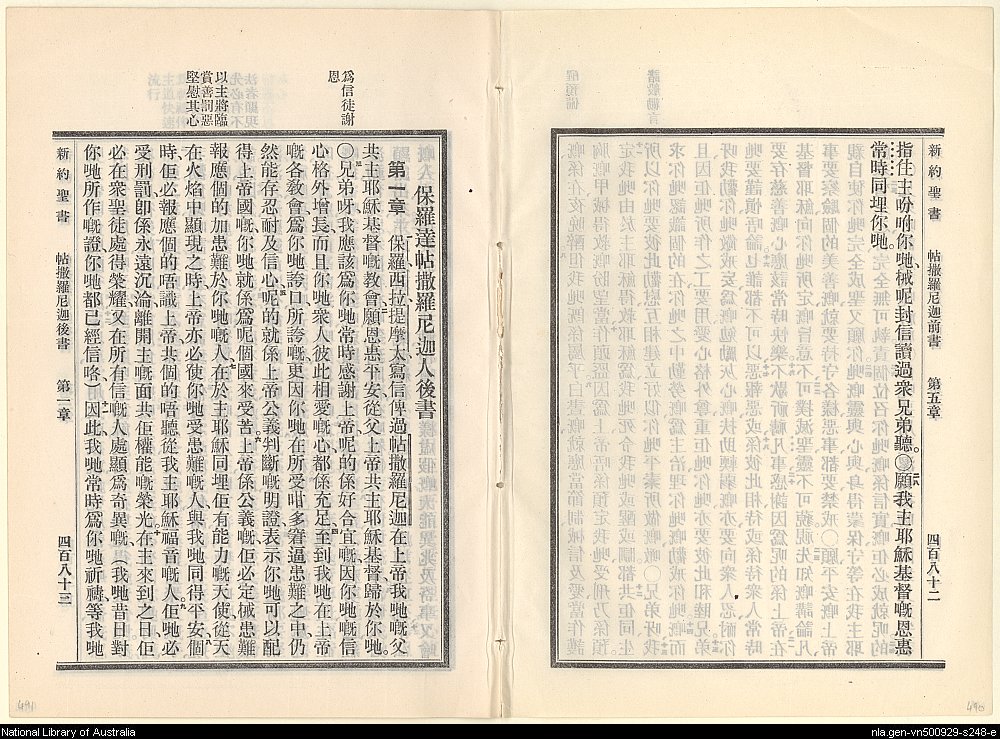 新約聖書 帖撒羅尼迦前書 第五章 四百八十二
指住主吩咐你哋、械呢封信讀過衆兄弟聽。○願我主耶穌基督嘅恩惠
常時同埋你哋。
保羅達帖撒羅尼迦人後書
爲信徒謝
恩
第一章 保羅西拉提摩太寫信俾過帖撒羅尼迦在上帝我哋嘅父
共主耶穌基督嘅教會願恩惠平安從父上帝共主耶穌基督歸於你哋。
○兄弟呀、我應該爲你哋常時感謝上帝、呢的係好合宜嘅、因你哋嘅信
心格外增長、而且你哋衆人彼此相愛嘅心都係充足、至到我哋在上帝
嘅各教會爲你哋誇口、所誇嘅更因你哋在所受咁多窘逼患難之中、仍
然能存忍耐及信心、呢的就係上帝公義判斷嘅明證、表示你哋可以配
得上帝國嘅、你哋就係爲呢個國來受苦、上帝係公義嘅、佢必定械患難
以主將臨
賞善罰惡
堅慰其心
報應個的加患難於你哋嘅人、在於主耶穌同埋佢有能力嘅天使、從天
在火焰中顯現之時、上帝亦必使你哋受患難嘅人、與我哋同得平安、個
時、佢必報應個的唔識上帝、共個的唔聽從我主耶穌福音嘅人、佢哋必
受刑罰、卽係永遠沉淪、離開主嘅面、共佢權能嘅榮光、在主來到之日、佢
必在衆聖徒處得榮耀、又在所有信嘅人處顯爲奇異嘅、（我哋昔日對
你哋所作嘅證、你哋都已經信咯）因此我哋常時爲你哋祈禱、等我哋
新約聖書 帖撒羅尼迦後書 第一章 四百八十三
491
490
National Library of Australia
nla.gen-vn500929-s248-e